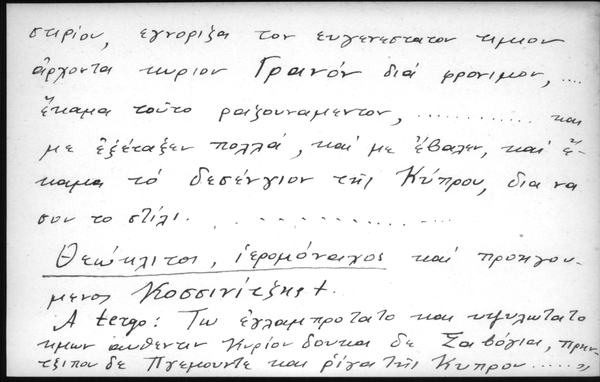 στιρίου, εγνορίξα τον ευγενεστατον ημιον
άρχοντα κυριον Γρανόν διά φρονιμον, ....
ἔκαμα τοῦτο ραξουναμεντον, ............ και
με ἐξέταξεν πολλά, καί με ἔβαλεν, καί ἔ-
καμα τό δεσένγιον τῆς Κύπρου, δια να
σου το στίλι. . . . . . . . . . . . . .
Θεώκλιτος, ἱερομόναχος καί προηγου-
μενος Κοσσινίτζης +.
A tergo: Τω ἐγλαμπροτατο και υψυλωτατο
ημων αυθενταν Κυρίον δουκαι δε Σαβόγια, πριν-
τζιπου δε Πγεμουντε και ρίγα τῆς Κυπρου ......,